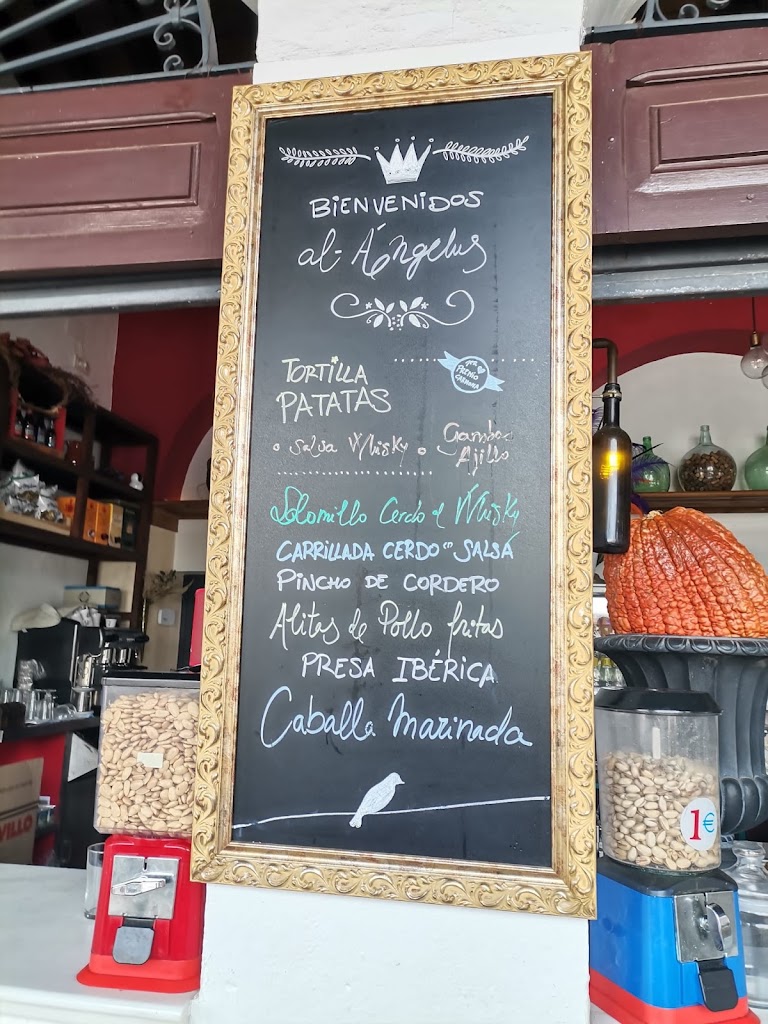 BIENVENIDOS
al-Ángelus
TORTILLA
PATATAS
PREMIO
Salsa Whisky
Gambas
Ajillo
Solomillo Cerdo al Whisky
CARRILLADA CERDO en SALSA
PINCHO DE CORDERO
Alitas de Pollo fritas
PRESA IBÉRICA
Caballa Marinada
1€